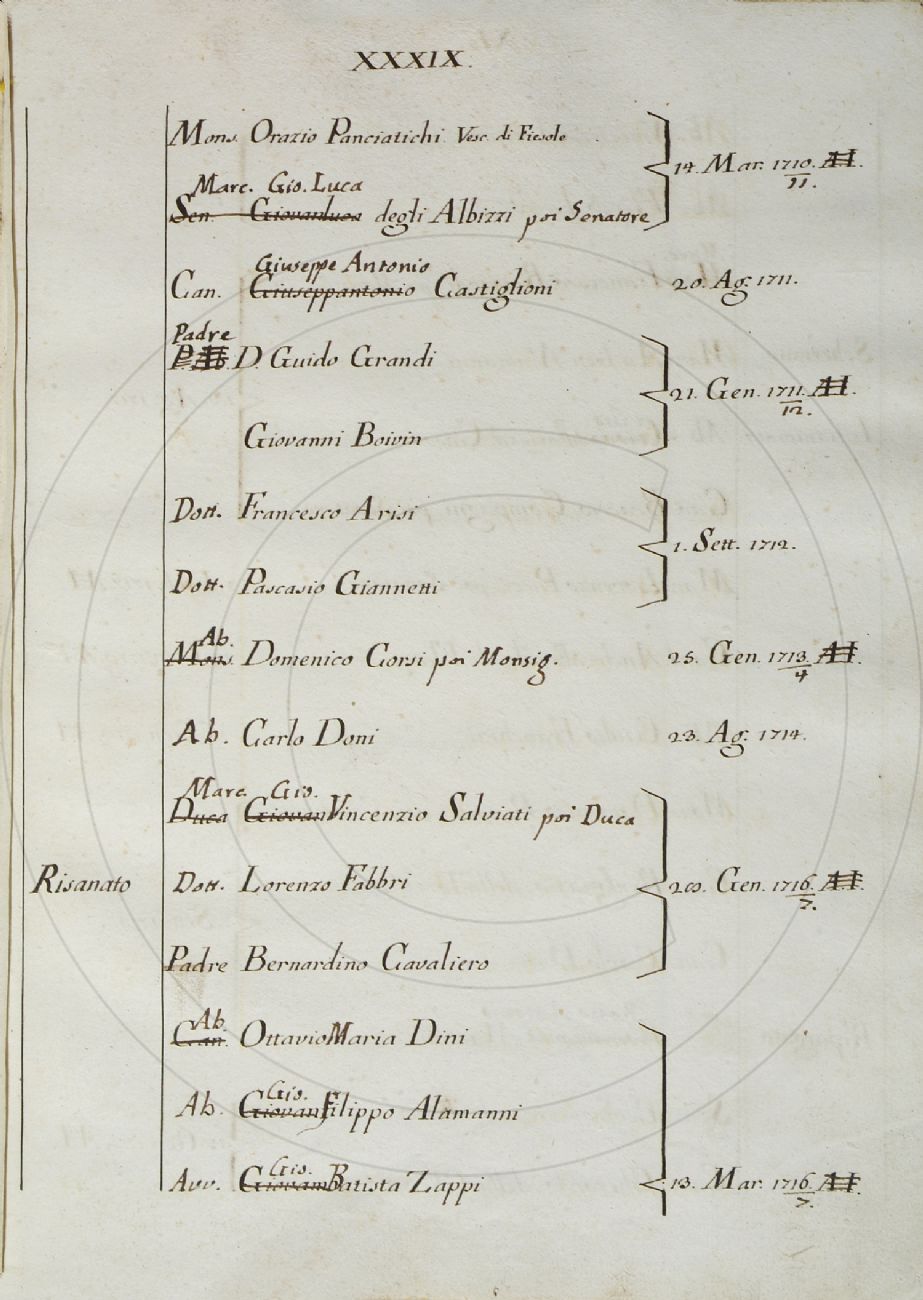 XXXIX.
Mons. Orazio Panciatichi Vesc. di Fiesole
14. Mar. 1710. AI.
11.
Marc. Gio. Luca
Sen. Giovanluca degli Albizzi poi Senatore
Giuseppe Antonio
Can. Giuseppantonio Castiglioni 20. Ag. 1711.
Padre
D. Guido Grandi
21. Gen. 1711. AI.
12.
Giovanni Boivin
Dott. Francesco Arisi
1. Sett. 1712.
Dott. Pascasio Giannetti
Ab.
Mons. Domenico Corsi poi Monsig. 25. Gen. 1713. AI.
4
Ab. Carlo Doni 23. Ag. 1714.
Marc. Gio.
Duca GiovanVincenzio Salviati poi Duca
Risanato Dott. Lorenzo Fabbri 20. Gen. 1716. AI.
7.
Padre Bernardino Cavaliero
Ab.
Can. OttavioMaria Dini
Gio.
Ab. GiovanFilippo Alamanni
Gio.
Avv. GiovamBatista Zappi 13. Mar. 1716. AI.
7.